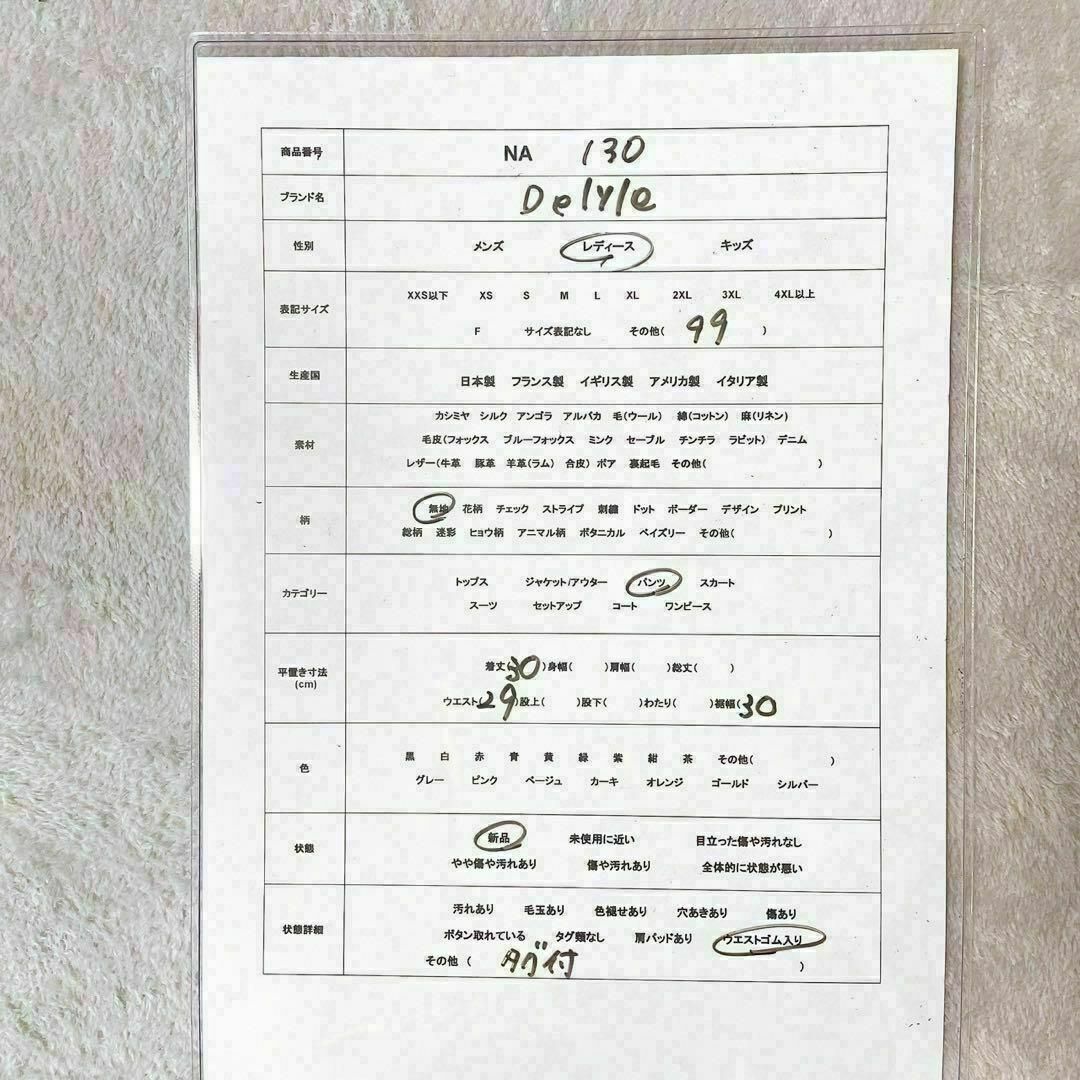 商品番号 NA 130
ブランド名 Delyle
性別 メンズ レディース キッズ
表記サイズ XXS以下 XS S M L XL 2XL 3XL 4XL以上
F サイズ表記なし その他( 99 )
生産国 日本製 フランス製 イギリス製 アメリカ製 イタリア製
カシミヤ シルク アンゴラ アルパカ 毛(ウール) 綿(コットン) 麻(リネン)
素材 毛皮(フォックス ブルーフォックス ミンク セーブル チンチラ ラビット) デニム
レザー(牛革 豚革 羊革(ラム) 合皮) ボア 裏起毛 その他( )
柄 無地 花柄 チェック ストライプ 刺繍 ドット ボーダー デザイン プリント
総柄 迷彩 ヒョウ柄 アニマル柄 ボタニカル ペイズリー その他( )
カテゴリー トップス ジャケット/アウター パンツ スカート
スーツ セットアップ コート ワンピース
平置き寸法 着丈(30)身幅( )肩幅( )総丈( )
(cm) ウエスト(29)股上( )股下( )わたり( )裾幅(30
色 黒 白 赤 青 黄 緑 紫 紺 茶 その他( )
グレー ピンク ベージュ カーキ オレンジ ゴールド シルバー
状態 新品 未使用に近い 目立った傷や汚れなし
やや傷や汚れあり 傷や汚れあり 全体的に状態が悪い
汚れあり 毛玉あり 色褪せあり 穴あきあり 傷あり
状態詳細 ボタン取れている タグ類なし 肩パッドあり ウエストゴム入り
その他 ( タグ付 )